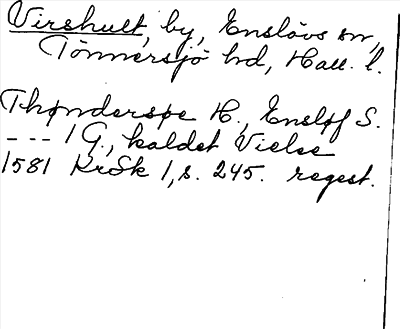 Virshult, by, Enslövs sn,
Tönnersjö hd, Hall. l.
Thøndersøe H., Ensløf S.
--- 1 G., kaldet Vielse
1581 KrSk 1, s. 245. regest.